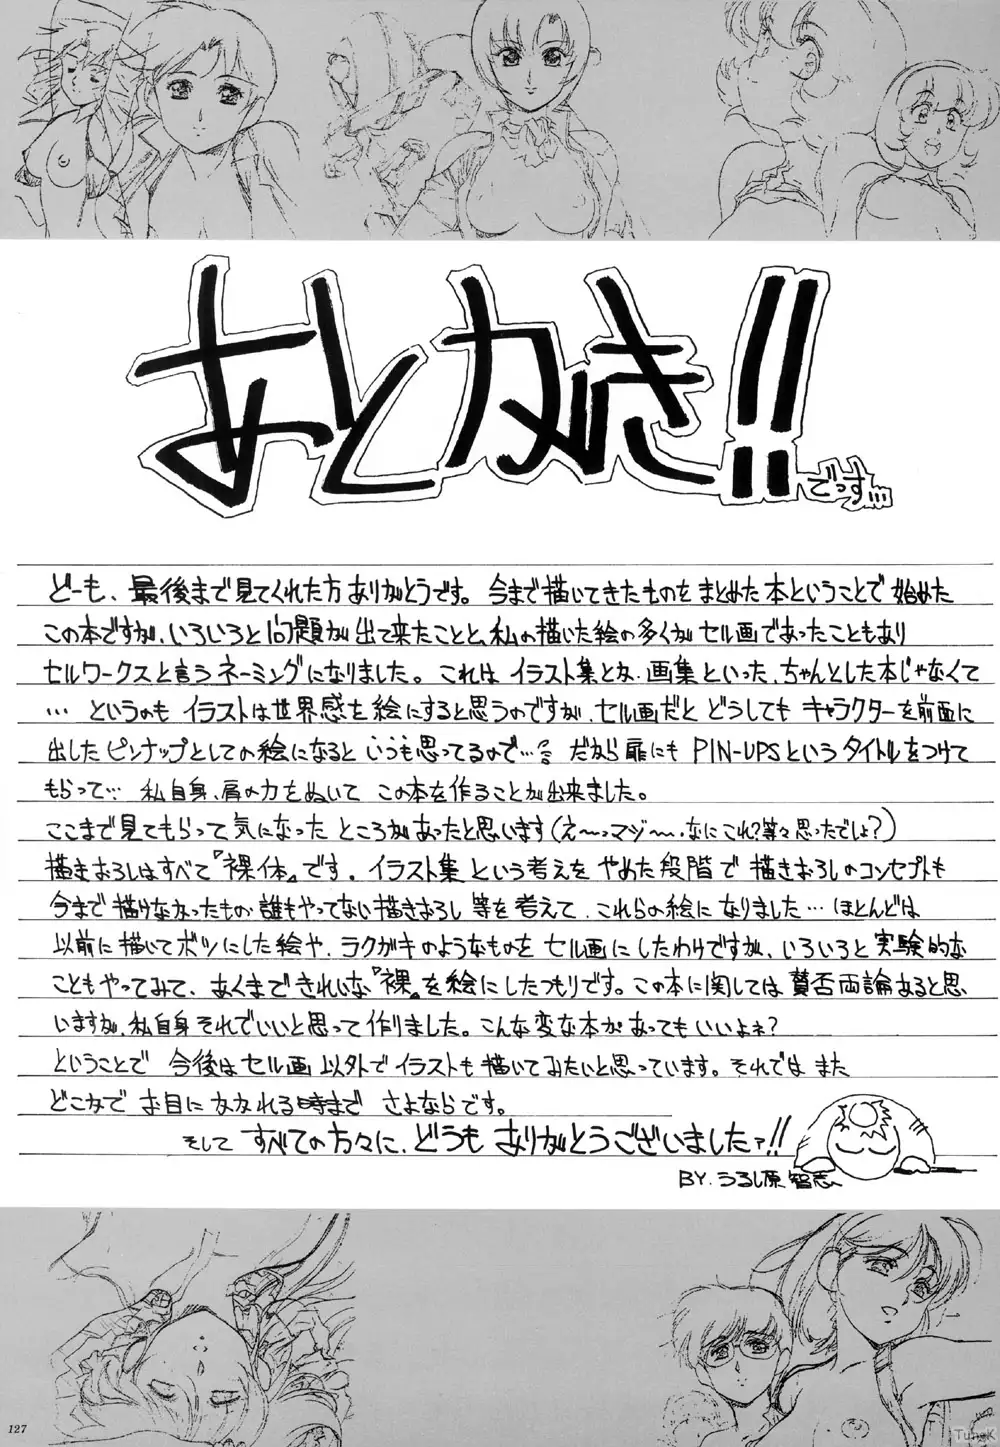 あとがき!!
でっす…
どーも、最後まで見てくれた方ありがとうです。今まで描いてきたものをまとめた本ということで始めた
この本ですが、いろいろと問題が出て来たことと、私の描いた絵の多くがセル画であったこともあり
セルワークスと言うネーミングになりました。これはイラスト集とか、画集といった、ちゃんとした本じゃなくて
…というのもイラストは世界感を絵にすると思うのですが、セル画だとどうしてもキャラクターを前面に
出したピンナップとしての絵になるといつも思ってるので…。だから扉にもPIN-UPSというタイトルをつけて
もらって… 私自身、肩の力をぬいてこの本を作ることが出来ました。
ここまで見てもらって気になったところがあったと思います(え〜っマジ〜、なにこれ?等々思ったでしょ?)
描きおろしはすべて『裸体』です。イラスト集という考えをやめた段階で描きおろしのコンセプトも
今まで描けなかったもの・誰もやってない描きおろし等を考えて、これらの絵になりました…ほとんどは
以前に描いてボツにした絵や、ラクガキのようなものをセル画にしたわけですが、いろいろと実験的な
こともやってみて、あくまできれいな『裸』を絵にしたつもりです。この本に関しては賛否両論あると思
いますが、私自身それでいいと思って作りました。こんな変な本があってもいいよネ?
ということで 今後はセル画以外でイラストも描いてみたいと思っています。それでは また
どこかで お目にかかれる時まで さよならです。
そして すべての方々に、どうも ありがとうございましたァ!!
BY.うるし原 智志
127
TuneK